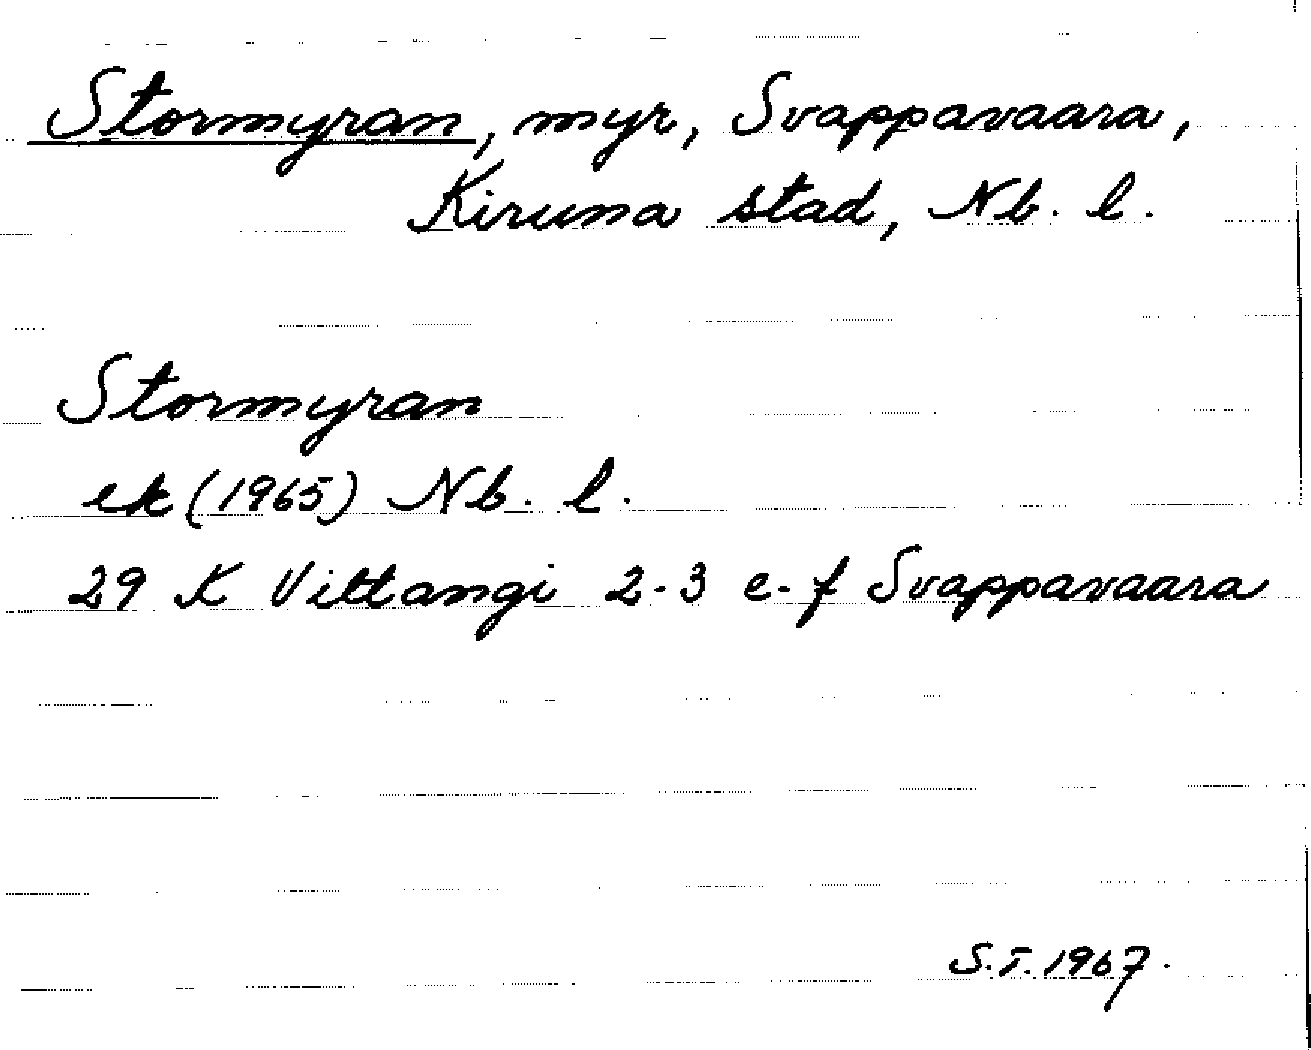 Stormyran, myr, Svappavaara,
Kiruna stad, Nb. l.
Stormyran
ek (1965) Nb. l.
29 K Vittangi 2-3 e-f Svappavaara
S.T. 1967.